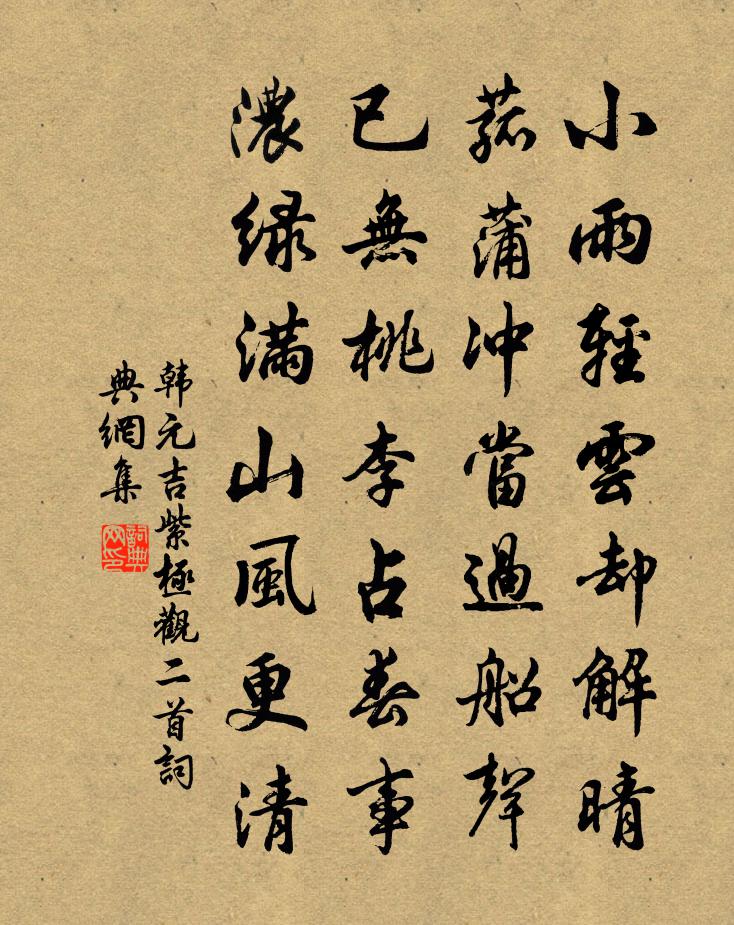 小雨輕雲却解晴
菰蒲冲當過船聲
已無桃李占春事
濃緑滿山風更清
韩元吉紫極觀二首詞
典網集
詞典
网印